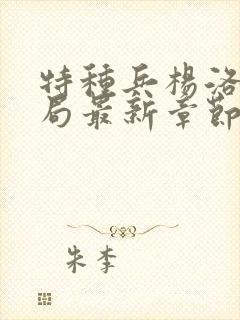 特種兵楊洛
局最新章節
朱李